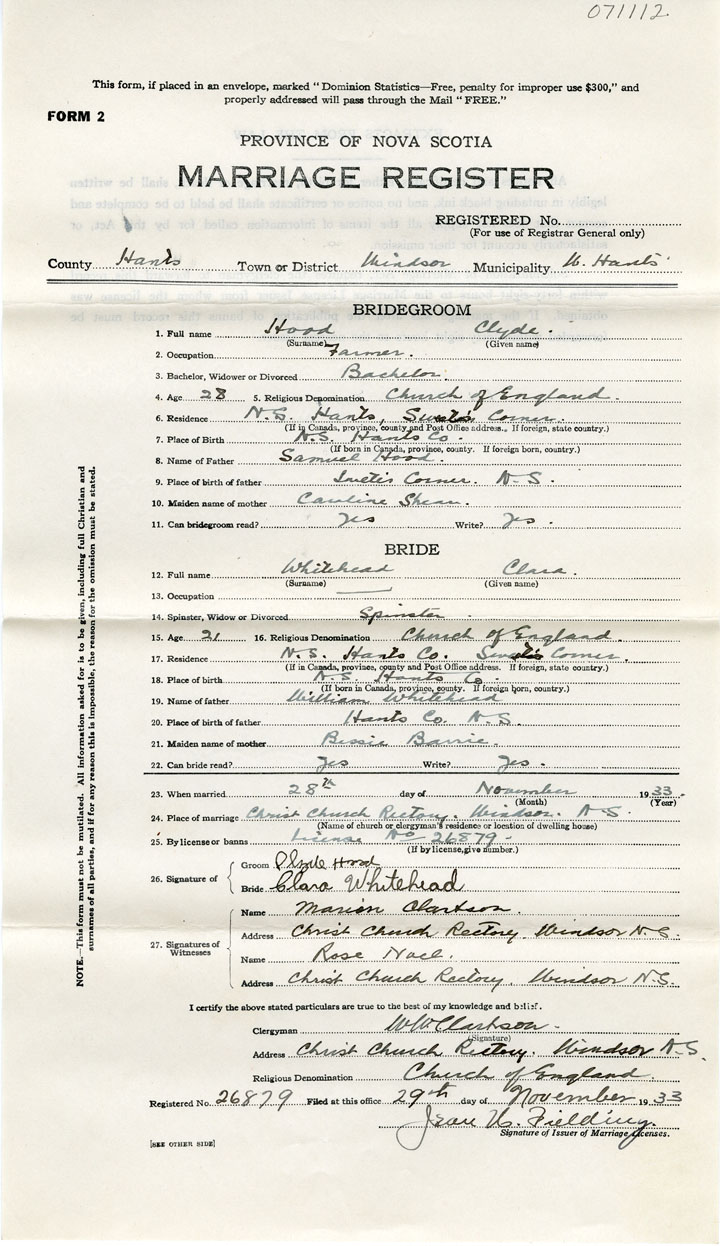 071112
This form, if placed in an envelope, marked "Dominion Statistics—Free, penalty for improper use $300," and
properly addressed will pass through the Mail "FREE."
FORM 2
PROVINCE OF NOVA SCOTIA
MARRIAGE REGISTER
REGISTERED No.
(For use of Registrar General only)
County Hants Town or District Windsor Municipality W. Hants
BRIDEGROOM
1. Full name Hood Clyde.
(Surname) (Given name)
2. Occupation Farmer.
3. Bachelor, Widower or Divorced Bachelor.
4. Age 28 5. Religious Denomination Church of England.
6. Residence N.S. Hants, Corner.
(If in Canada, province, county and Post Office address. If foreign, state country.)
7. Place of Birth N.S. Hants Co.
(If born in Canada, province, county. If foreign born, country.)
8. Name of Father Samuel Hood.
9. Place of birth of father Corner. N-S.
10. Maiden name of mother Caroline
11. Can bridegroom read? Yes Write? Yes.
BRIDE
12. Full name Whitehead Clara.
(Surname) (Given name)
13. Occupation
14. Spinster, Widow or Divorced Spinster.
15. Age 21 16. Religious Denomination Church of England.
17. Residence N.S. Hants Co. Corner.
(If in Canada, province, county and Post Office address. If foreign, state country.)
18. Place of birth N.S. Hants Co.
(If born in Canada, province, county. If foreign born, country.)
19. Name of father William Whitehead
20. Place of birth of father Hants Co. N-S.
21. Maiden name of mother Bessie Barrie.
22. Can bride read? Yes Write? Yes.
23. When married 28th day of November 1933.
(Month) (Year)
24. Place of marriage Christ Church Rectory. Windsor. N-S.
(Name of church or clergyman's residence or location of dwelling house)
25. By license or banns License No 26879.
(If by license, give number.)
26. Signature of
Groom Clyde Hood
Bride Clara Whitehead
27. Signatures of Witnesses
Name Marion Clarkson.
Address Christ Church Rectory. Windsor N-S.
Name Rose
Address Christ Church Rectory. Windsor N-S.
I certify the above stated particulars are true to the best of my knowledge and belief.
Clergyman W W Clarkson.
(Signature)
Address Christ Church Rectory. Windsor N-S.
Religious Denomination Church of England.
Registered No. 26879 Filed at this office 29th day of November 1933
Jean W. Fielding.
Signature of Issuer of Marriage Licenses.
[SEE OTHER SIDE]
NOTE.—This form must not be mutilated. All information asked for is to be given, including full Christian and
surnames of all parties, and if for any reason this is impossible, the reason for the omission must be stated.